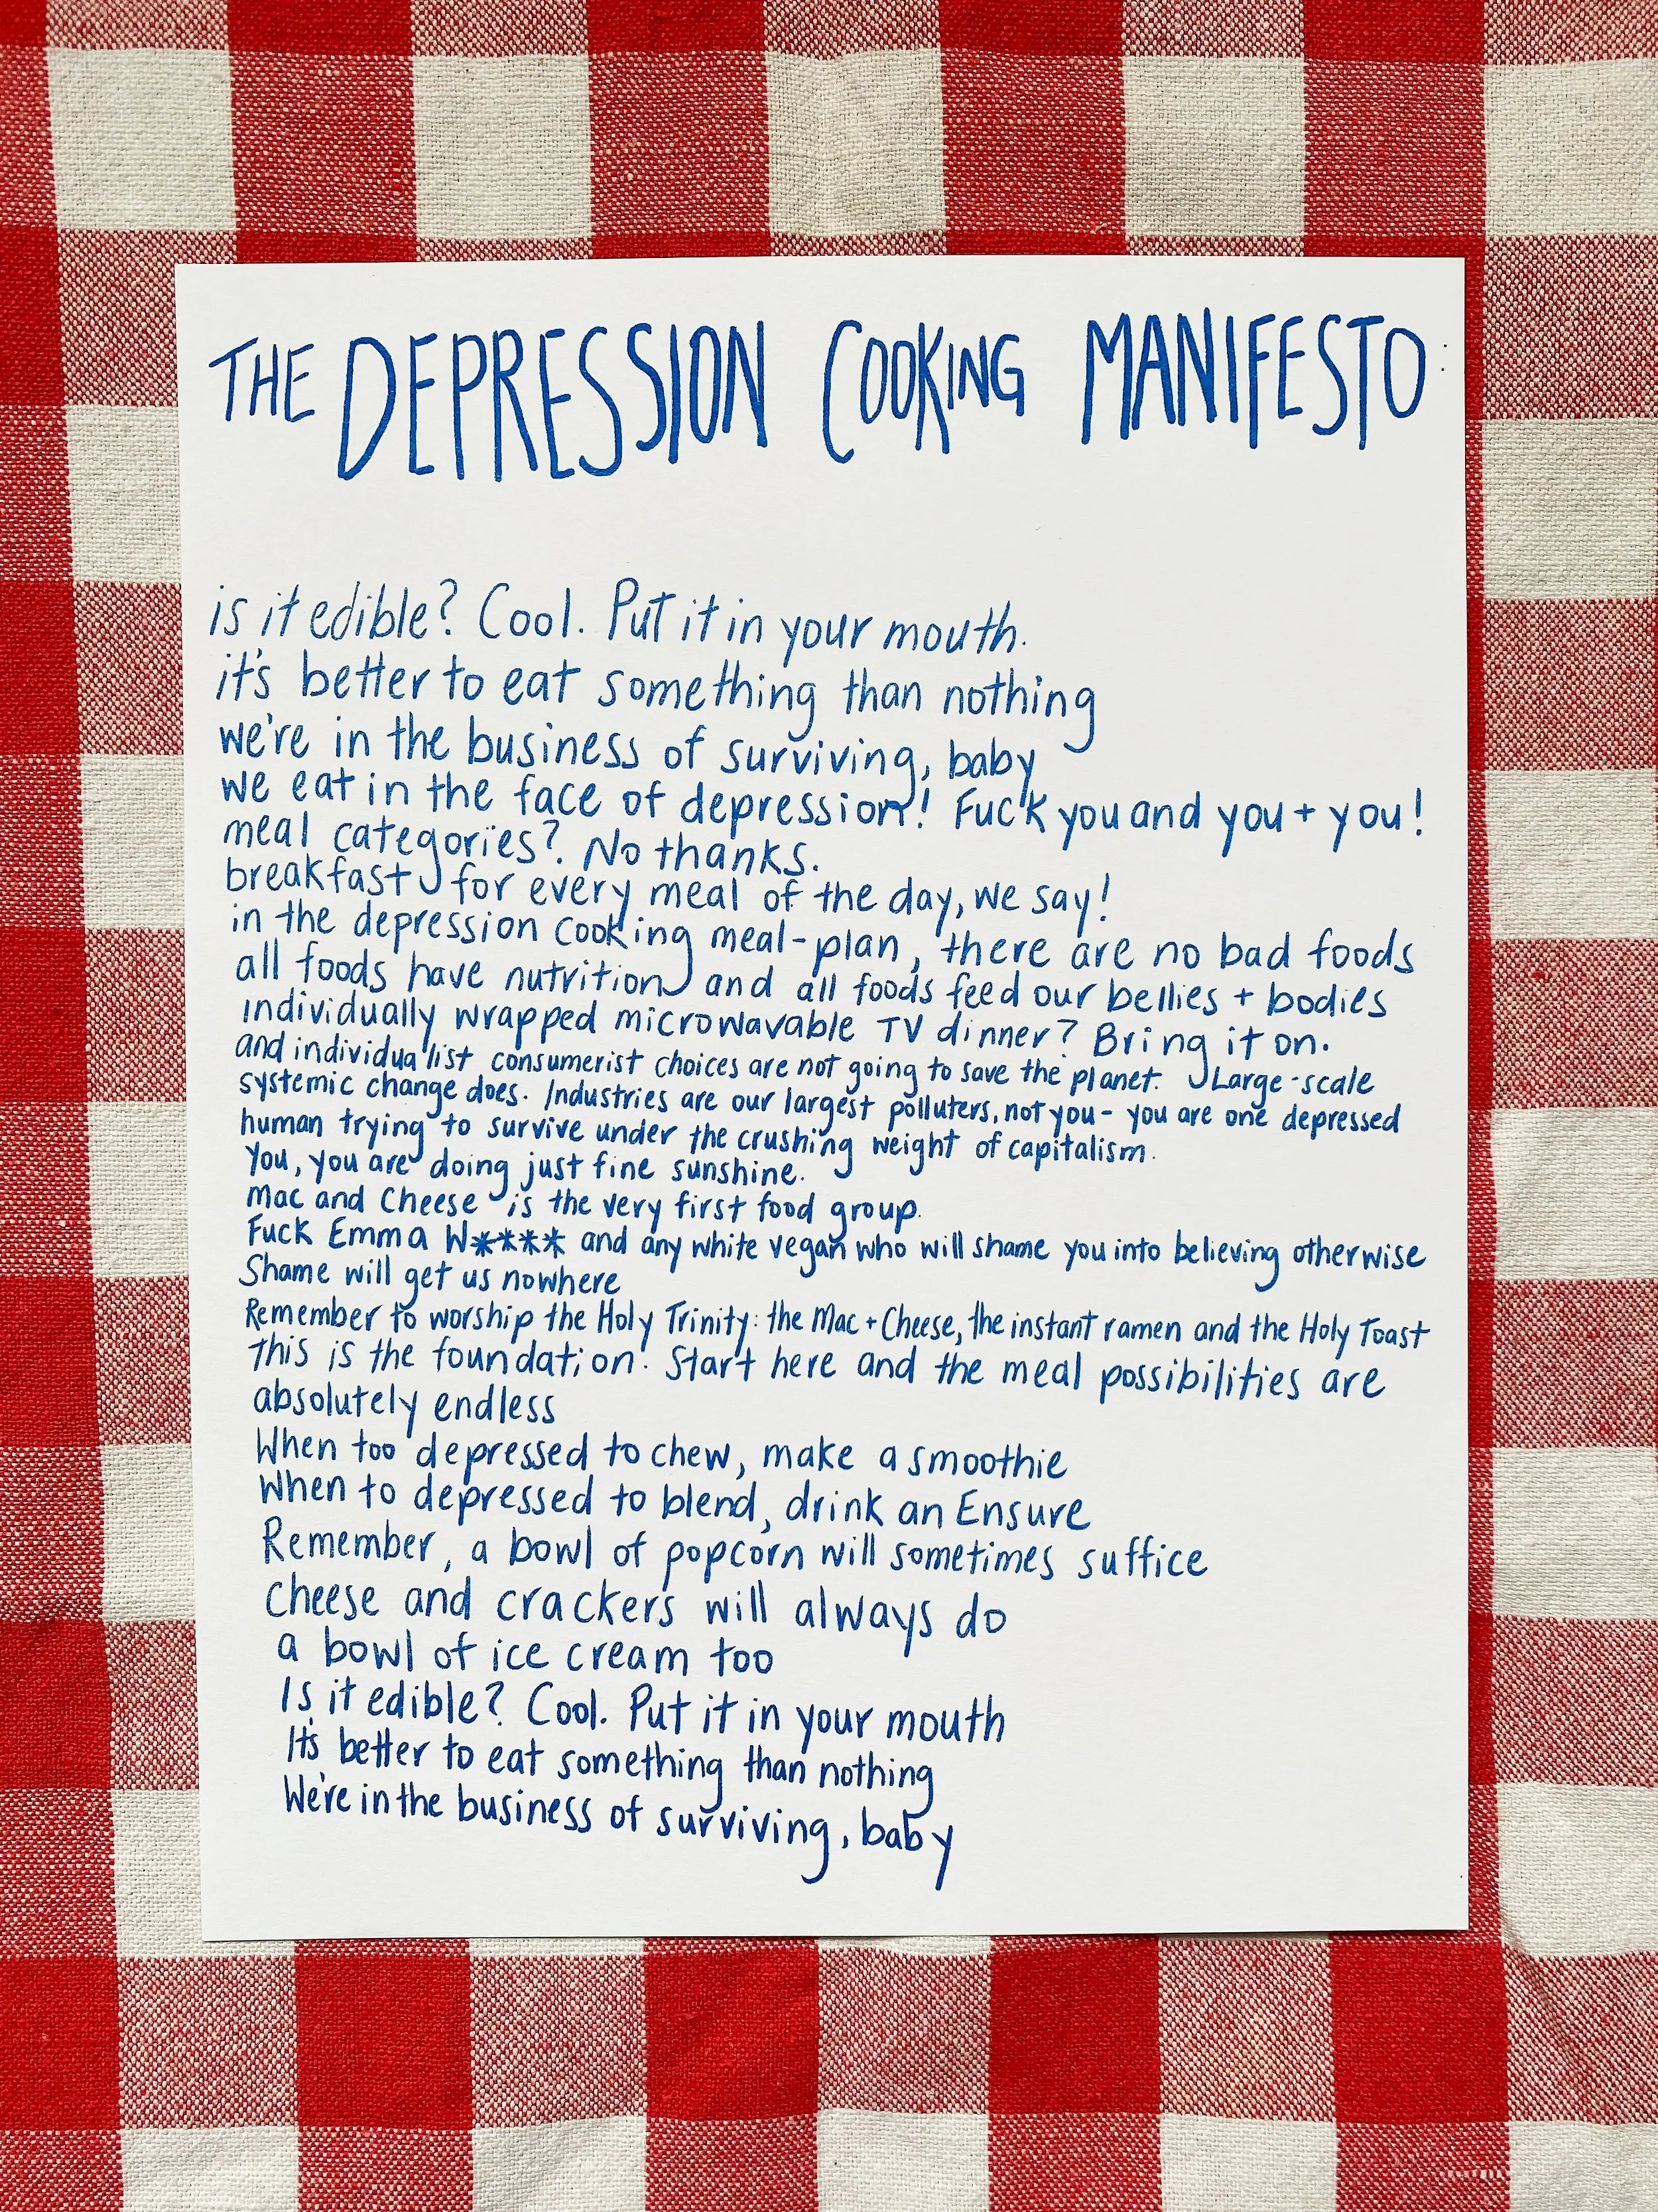 THE DEPRESSION COOKING MANIFESTO:
is it edible? Cool. Put it in your mouth.
it's better to eat something than nothing
we're in the business of surviving, baby
we eat in the face of depression! Fuck you and you + you!
meal categories? No thanks.
breakfast for every meal of the day, we say!
in the depression cooking meal-plan, there are no bad foods
all foods have nutrition and all foods feed our bellies + bodies
individually wrapped microwavable TV dinner? Bring it on.
and individualist consumerist choices are not going to save the planet. Large-scale
systemic change does. Industries are our largest polluters, not you - you are one depressed
human trying to survive under the crushing weight of capitalism.
You, you are doing just fine sunshine.
Mac and Cheese is the very first food group.
Fuck Emma W**** and any white vegan who will shame you into believing otherwise
Shame will get us nowhere
Remember to worship the Holy Trinity: the Mac + Cheese, the instant ramen and the Holy Toast
This is the foundation. Start here and the meal possibilities are
absolutely endless
When too depressed to chew, make a smoothie
When to depressed to blend, drink an Ensure
Remember, a bowl of popcorn will sometimes suffice
Cheese and crackers will always do
a bowl of ice cream too
Is it edible? Cool. Put it in your mouth
It's better to eat something than nothing
We're in the business of surviving, baby